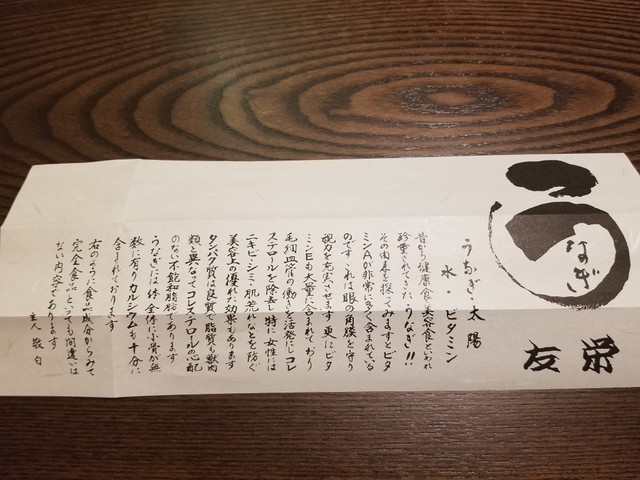 うなぎ
友栄
うなぎ・太陽
水・ビタミン
昔から健康食、美容食といわれ
珍重されてきた、うなぎ!!
その内容を探ってみますとビタ
ミンAが非常に多く含まれている
のです・これは眼の角膜を守り
視力を充実させます 更にビタ
ミンEも大量に含まれており
毛細血管の働きを活発にしコレ
ステロールを除去し特に女性には
ニキビ・シミ・肌荒れなどを防ぐ
美容上の優れた効果もあります
タンパク質は良質で脂質も獣肉
類と異なってコレステロールの心配
のない不飽和脂肪であります
うなぎには体全体に小骨が無
数に有りカルシウムも十分に
含まれております
右のように食品成分からみて
完全食品といっても間違いは
ない内容であります
主人 敬白